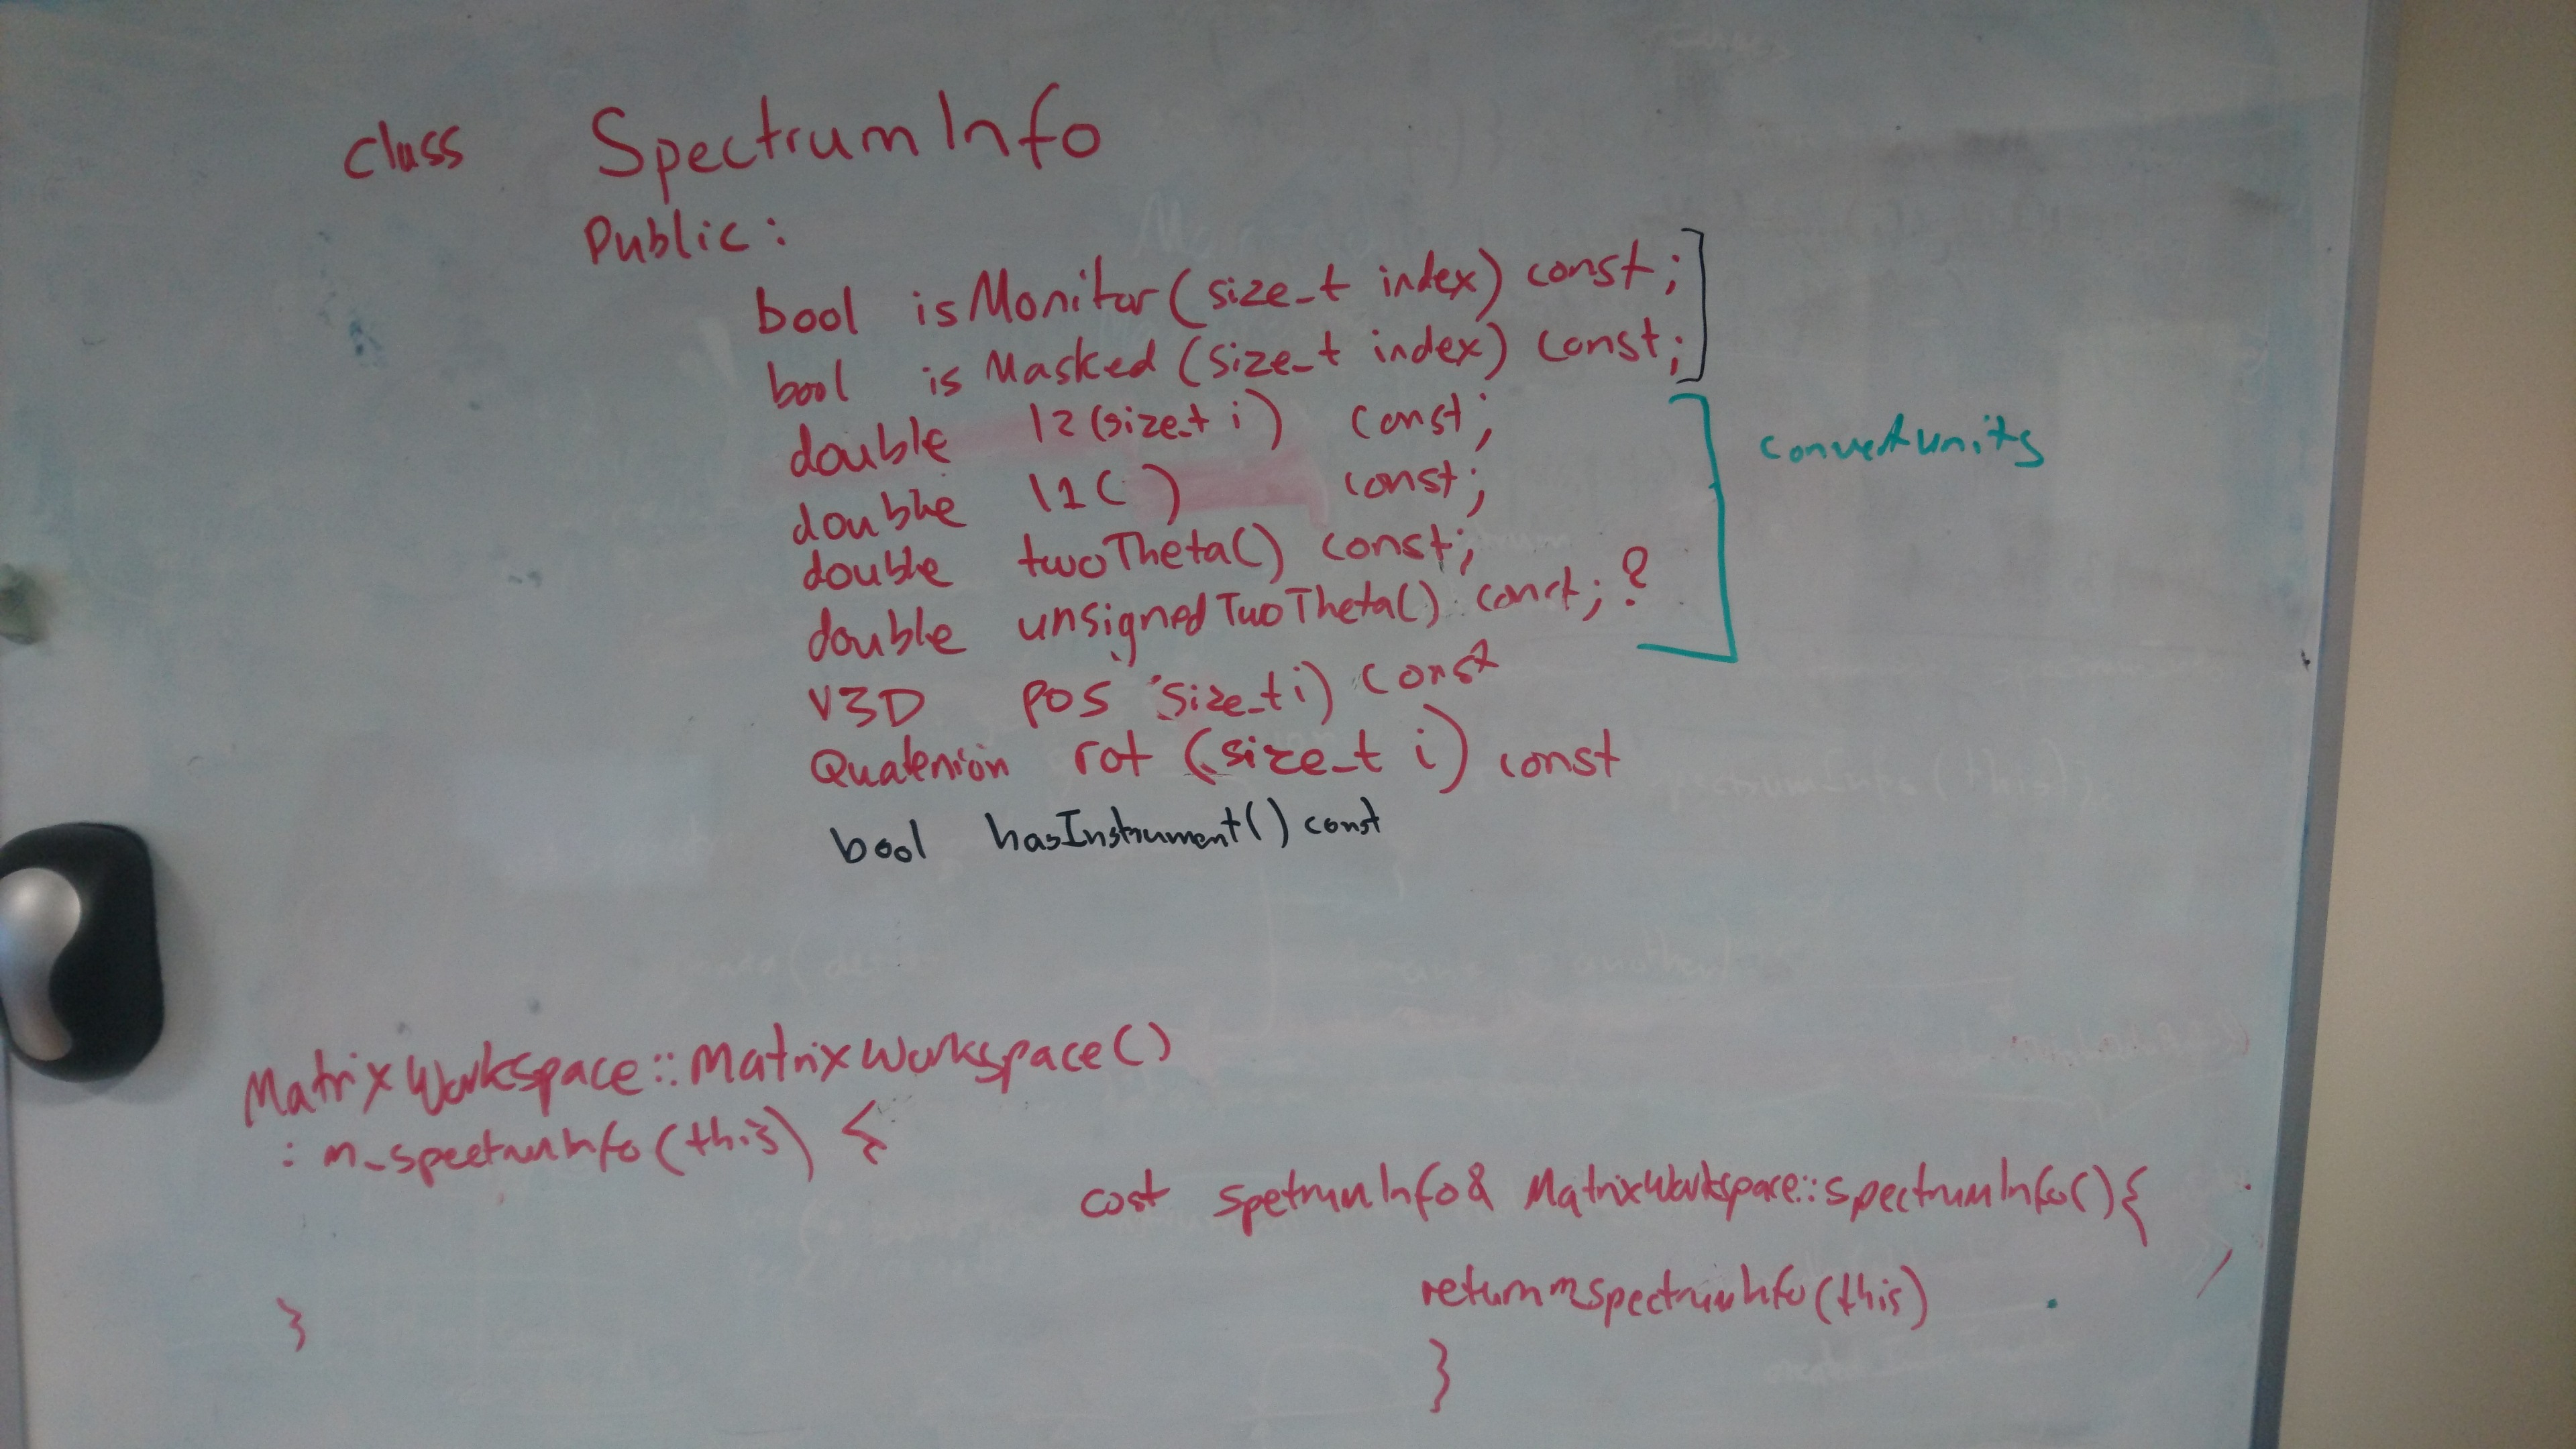 class SpectrumInfo
Public:
bool isMonitor(size_t index) const;
bool is Masked (size_t index) const;
double l2(size_t i) const;
convertunits
double l1( ) const;
double twoTheta() const;
double unsignedTwoTheta() const; ?
V3D pos size_t i) const
Quatenion rot (size_t i) const
bool hasInstrument() const
MatrixWorkspace::MatrixWorkspace()
: m_spectrumInfo(this) {
}
cost SpetrumInfo& MatrixWorkspace::spectrumInfo(){
return mspectrumInfo(this)
}